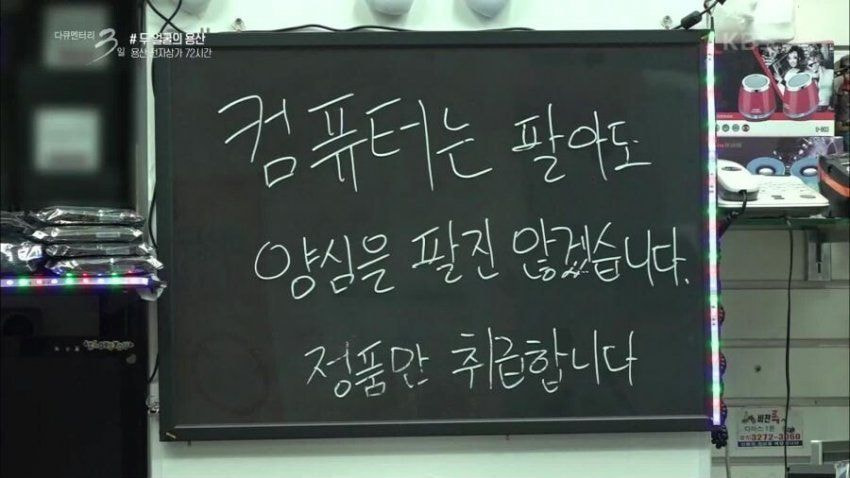 다큐멘터리 3일
# 두 얼굴의 용산
용산 전자상가 72시간
KBS
컴퓨터는 팔아도
양심을 팔진 않겠습니다.
정품만 취급합니다
비전
3272-3060